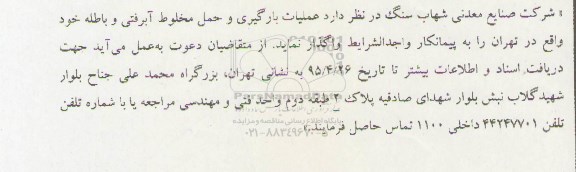 « شرکت صنایع معدنی شهاب سنگ در نظر دارد عملیات بارگیری و حمل مخلوط آبرفتی و باطله خود
واقع در تهران را به پیمانکار واجدالشرایط واگذار نماید. از متقاضیان دعوت به‌عمل می‌آید جهت
دریافت اسناد و اطلاعات بیشتر تا تاریخ ۹۵/۴/۲۶ به نشانی تهران، بزرگراه محمد علی جناح بلوار
شهیدگلاب نبش بلوار شهدای صادقیه پلاک ۲ طبقه دوم واحد فنی و مهندسی مراجعه یا با شماره تلفن
تلفن ۴۴۲۴۷۷۰۱ داخلی ۱۱۰۰ تماس حاصل فرمایند.»
ParsNamadData
پایگاه اطلاع رسانی مناقصه و مزایده